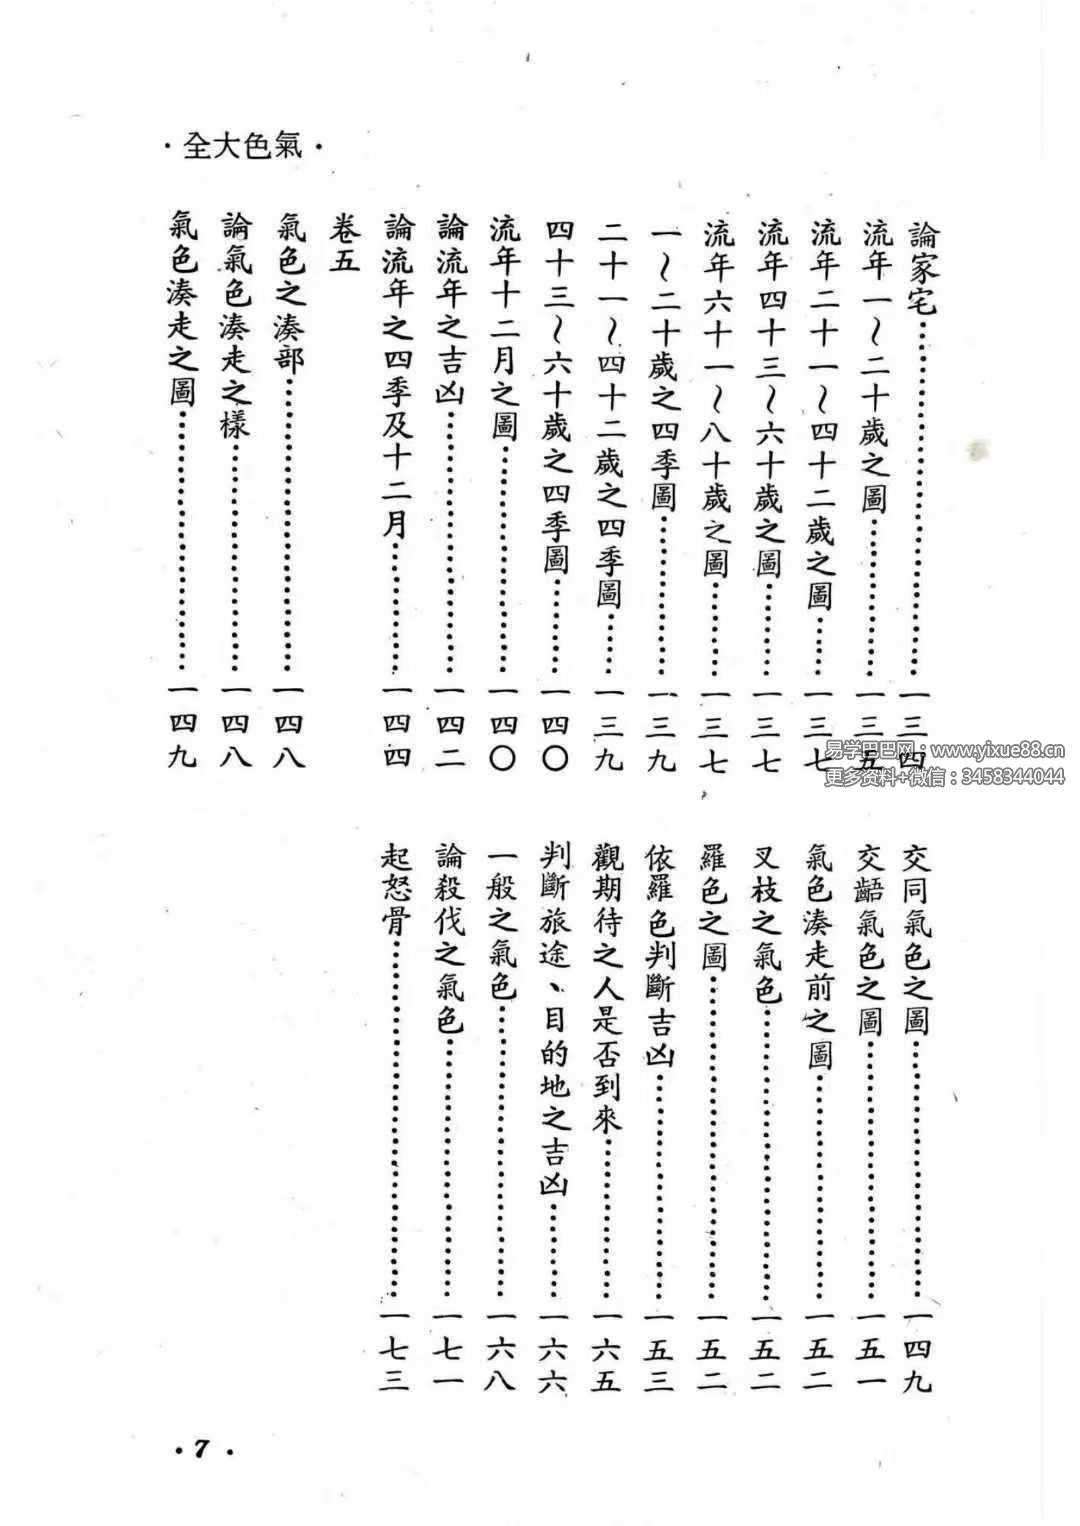 ·全大色氣·
論家宅……一三四
流年一～二十歲之圖……一三五
流年二十一～四十二歲之圖……一三七
流年四十三～六十歲之圖……一三七
流年六十一～八十歲之圖……一三七
一～二十歲之四季圖……一三九
二十一～四十二歲之四季圖……一三九
四十三～六十歲之四季圖……一四〇
流年十二月之圖……一四〇
論流年之吉凶……一四二
論流年之四季及十二月……一四四
卷五
氣色之湊部……一四八
論氣色湊走之樣……一四八
氣色湊走之圖……一四九
交同氣色之圖……一四九
交齬氣色之圖……一五一
氣色湊走前之圖……一五二
叉枝之氣色……一五二
羅色之圖……一五二
依羅色判斷吉凶……一五三
觀期待之人是否到來……一六五
判斷旅途、目的地之吉凶……一六六
一般之氣色……一六八
論殺伐之氣色……一七一
起怒骨……一七三
·7·
易学巴巴网：www.yixue88.cn
更多资料+微信：3458344044